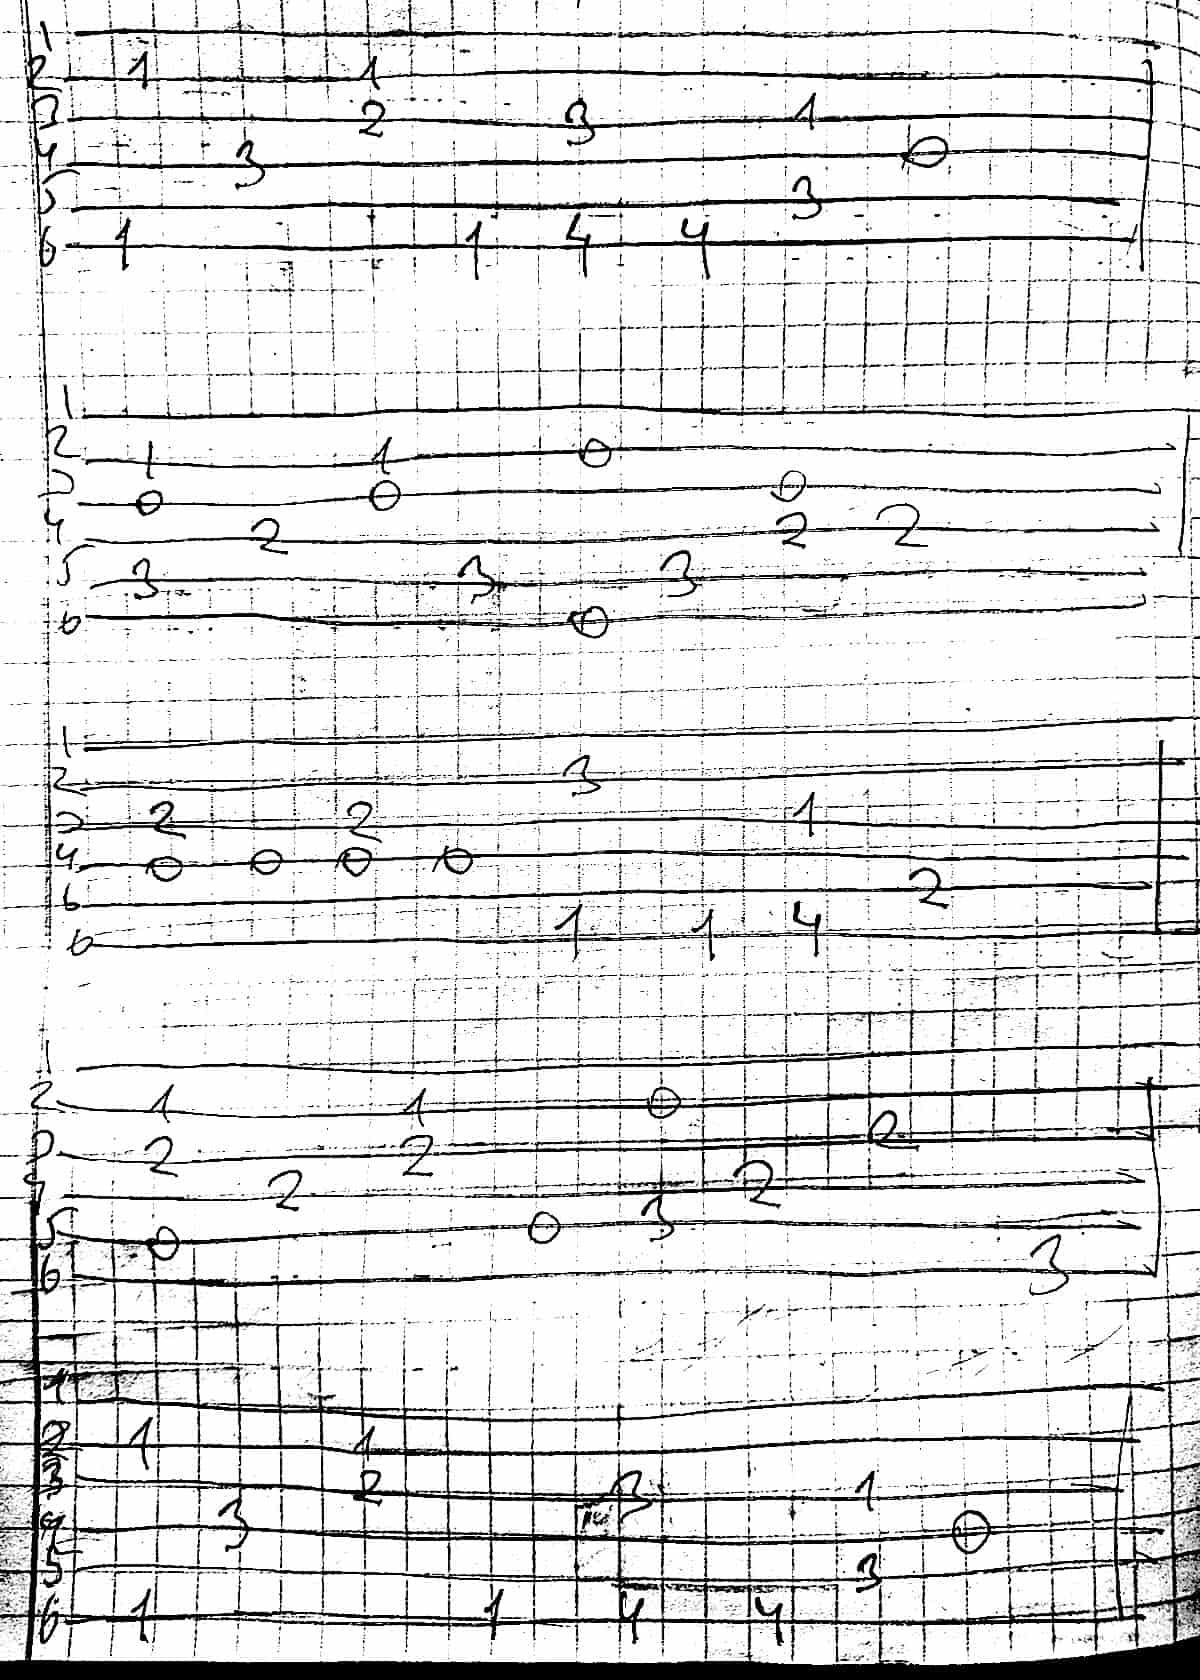 1
2 1 1
3 2 3 1
4 3 0
5 3
6 1 1 4 4
1
2 1 1 0
3 0 0 0
4 2 2 2
5 3 3 3
6 0
1
2 3
3 2 2 1
4 0 0 0 0
6 2
6 1 1 4
1
2 1 1 0
3 2 2 2
4 2 2
5 0 0 3
6 3
1
2 1 1
3 2 3 1
4 3 0
5 3
6 1 1 4 4